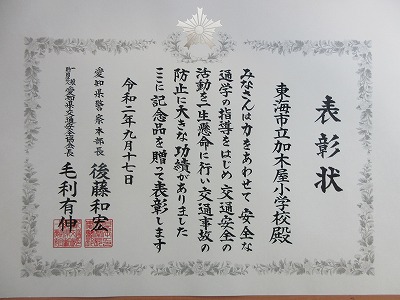 表彰状
東海市立加木屋小学校殿
みなさんは力をあわせて安全な
通学の指導をはじめ交通安全の
活動を一生懸命に行い交通事故の
防止に大きな功績がありました
ここに記念品を贈って表彰します
令和二年九月十七日
愛知県警察本部長 後藤和宏
一般財団法人 愛知県交通安全協会長 毛利有伸